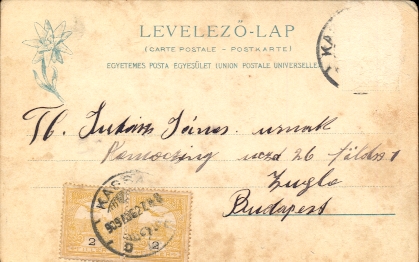 LEVELEZŐ-LAP
(CARTE POSTALE - POSTKARTE)
EGYETEMES POSTA EGYESÜLET (UNION POSTALE UNIVERSELLE)
KAS
Tb. Juhász János urnak
utcza 26 földsz 1
Zugló
Budapest
KASS
2 2